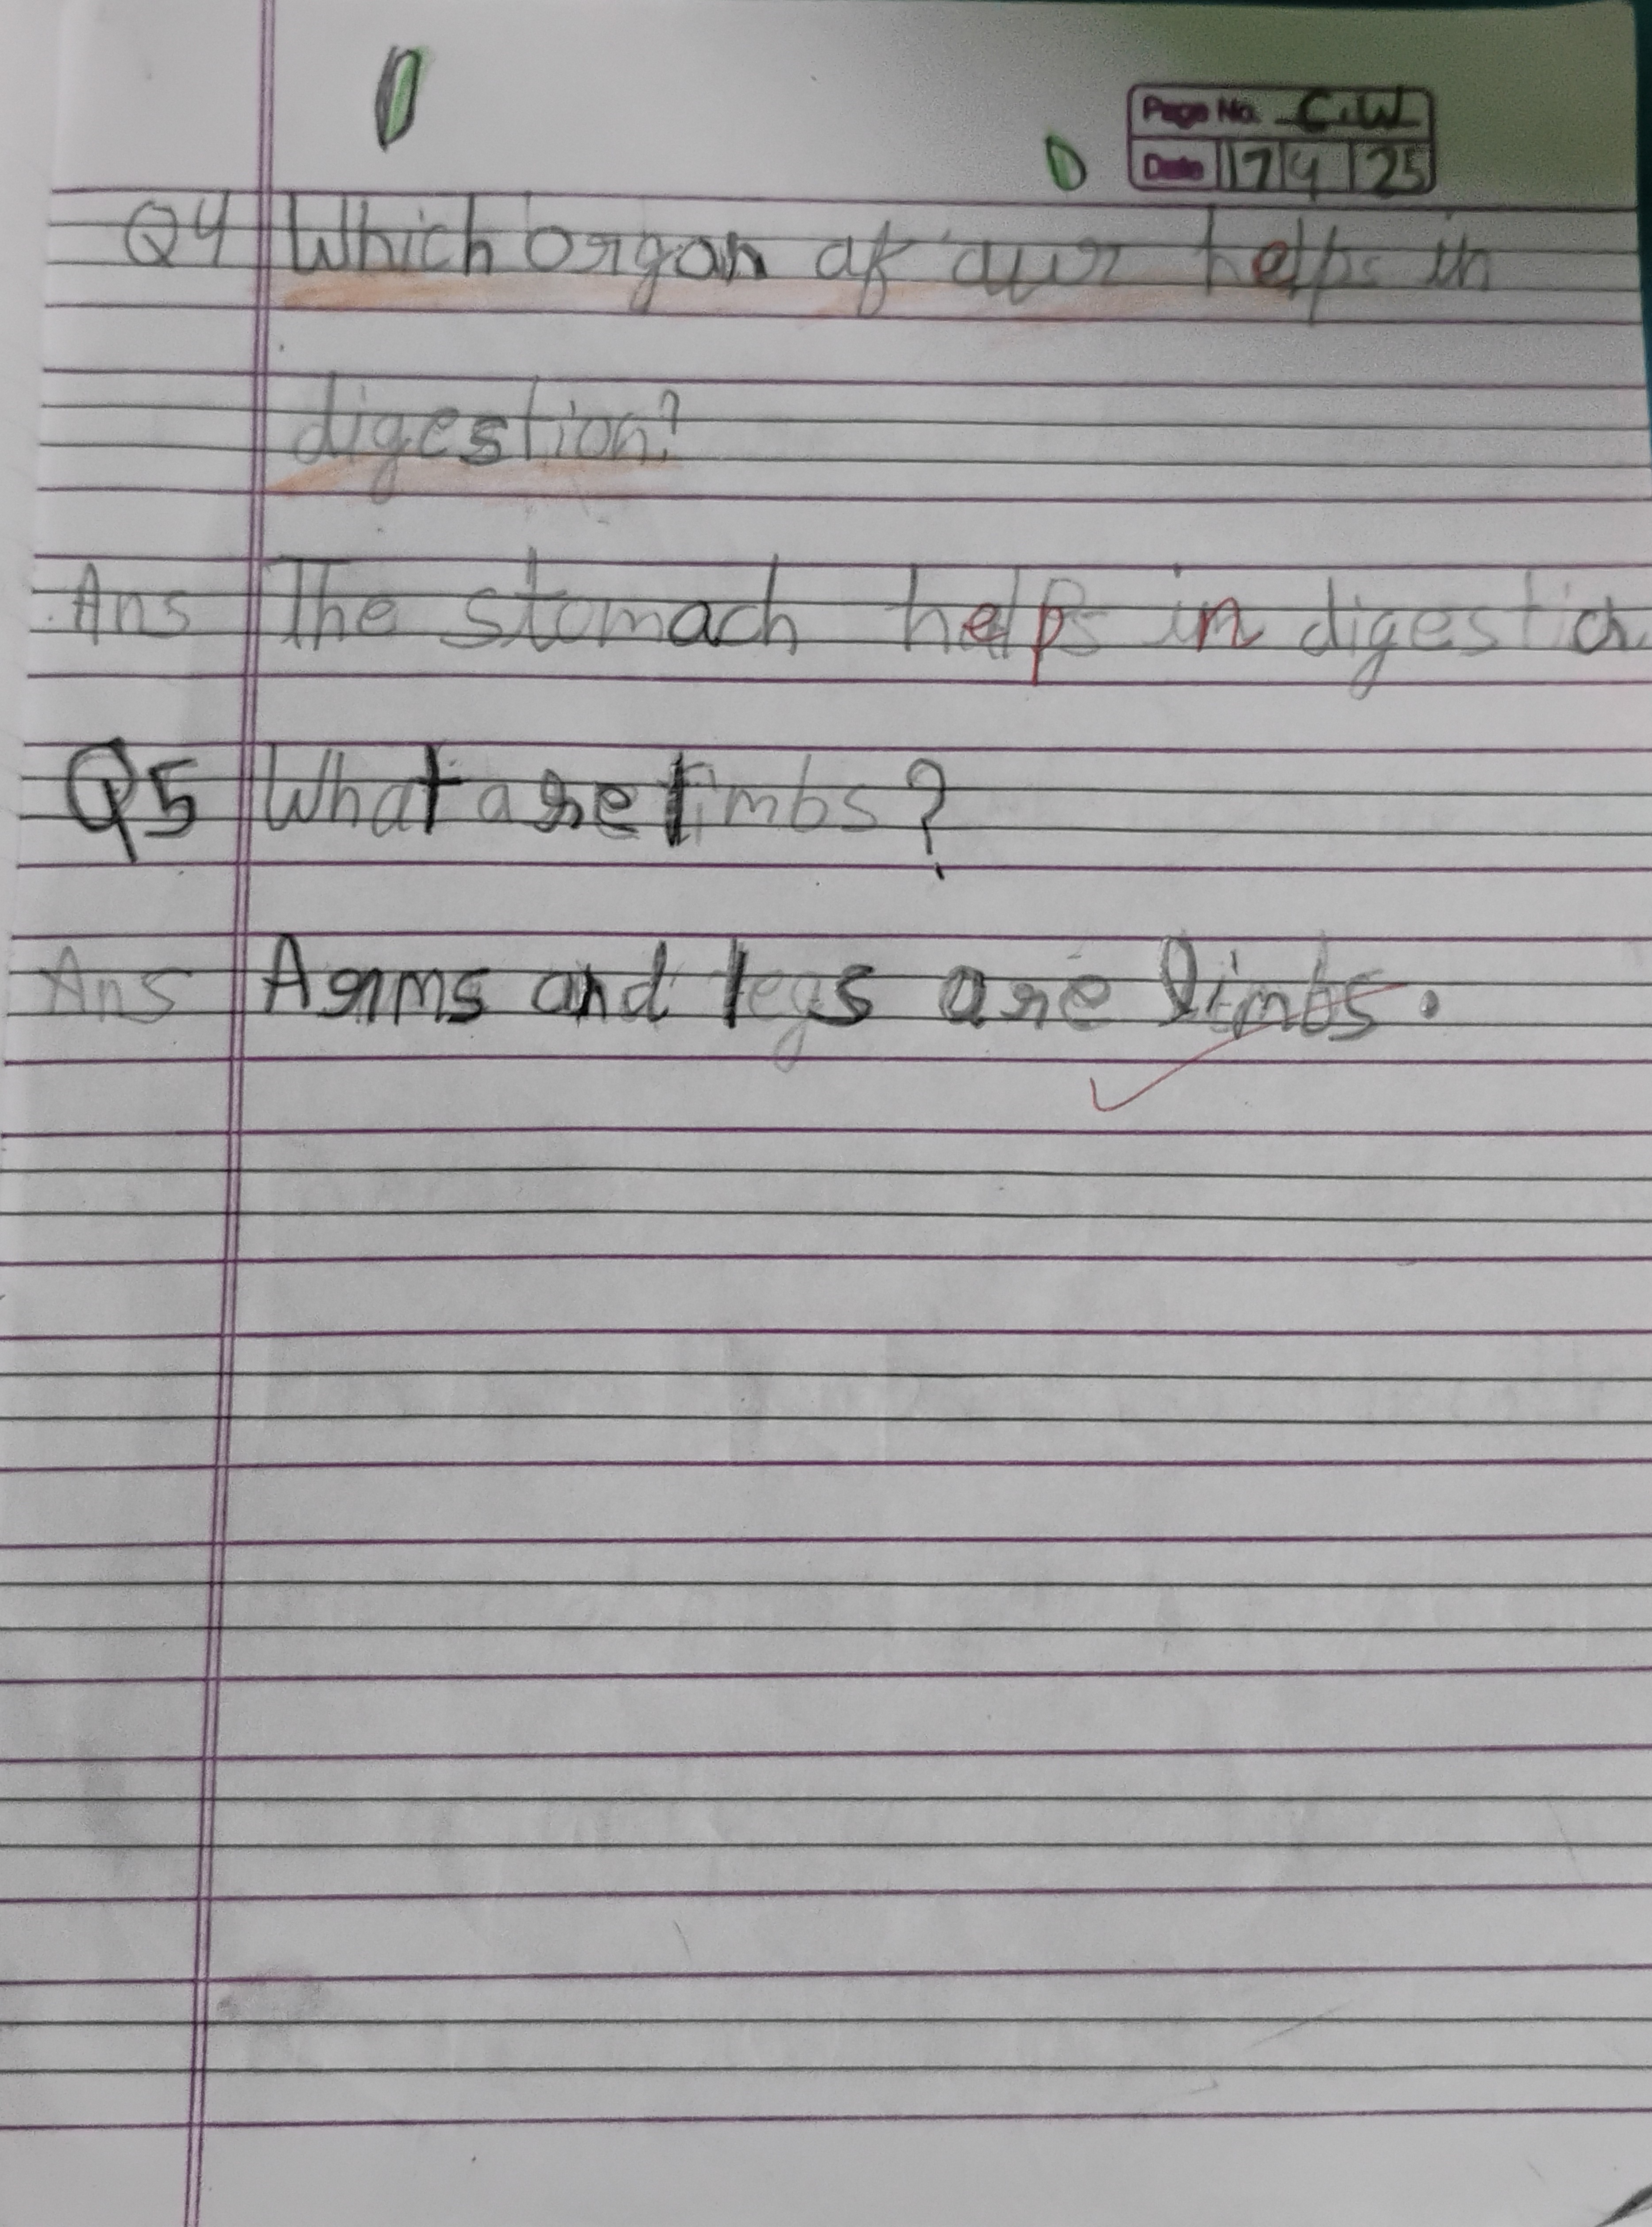 Page No. C.W
Date 17 4 25
Q4 Which organ of our helps in
digestion?
Ans The stomach helps in digestion
Q5 What are limbs?
Ans Arms and legs are limbs.